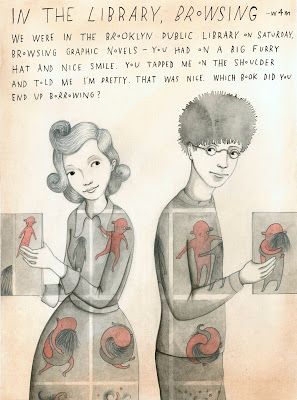 IN THE LIBRARY, BROWSING -w4m
WE WERE IN THE BROOKLYN PUBLIC LIBRARY ON SATURDAY,
BROWSING GRAPHIC NOVELS - YOU HAD ON A BIG FURRY
HAT AND NICE SMILE. YOU TAPPED ME ON THE SHOULDER
AND TOLD ME I'M PRETTY. THAT WAS NICE. WHICH BOOK DID YOU
END UP BORROWING?